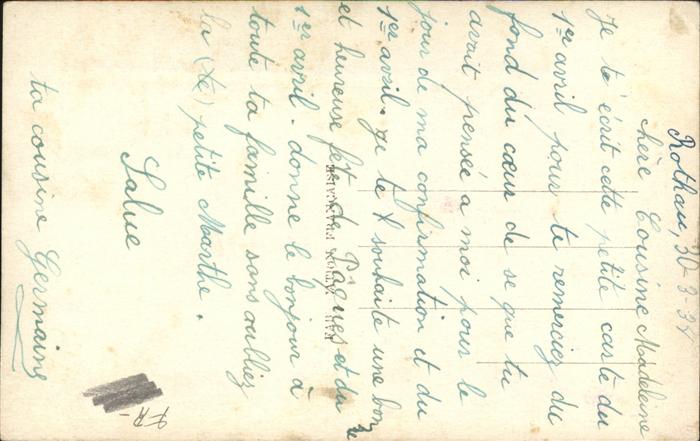 Rothau, 30-3-34
chère Cousine Madeleine
Je té écrit cette petite carte du
1er avril pour te remerciez du
fond du cœur de se que tu
avait pensée a moi pour le
jour de ma confirmation et du
1er avril. ge te souhaite une bonne
et heureuse fête de Pâques et du
1er avril. donne le bonjour à
toute ta famille sans oubliez
la (te) petite Marthe.
Salue
ta cousine Germaine
FR-